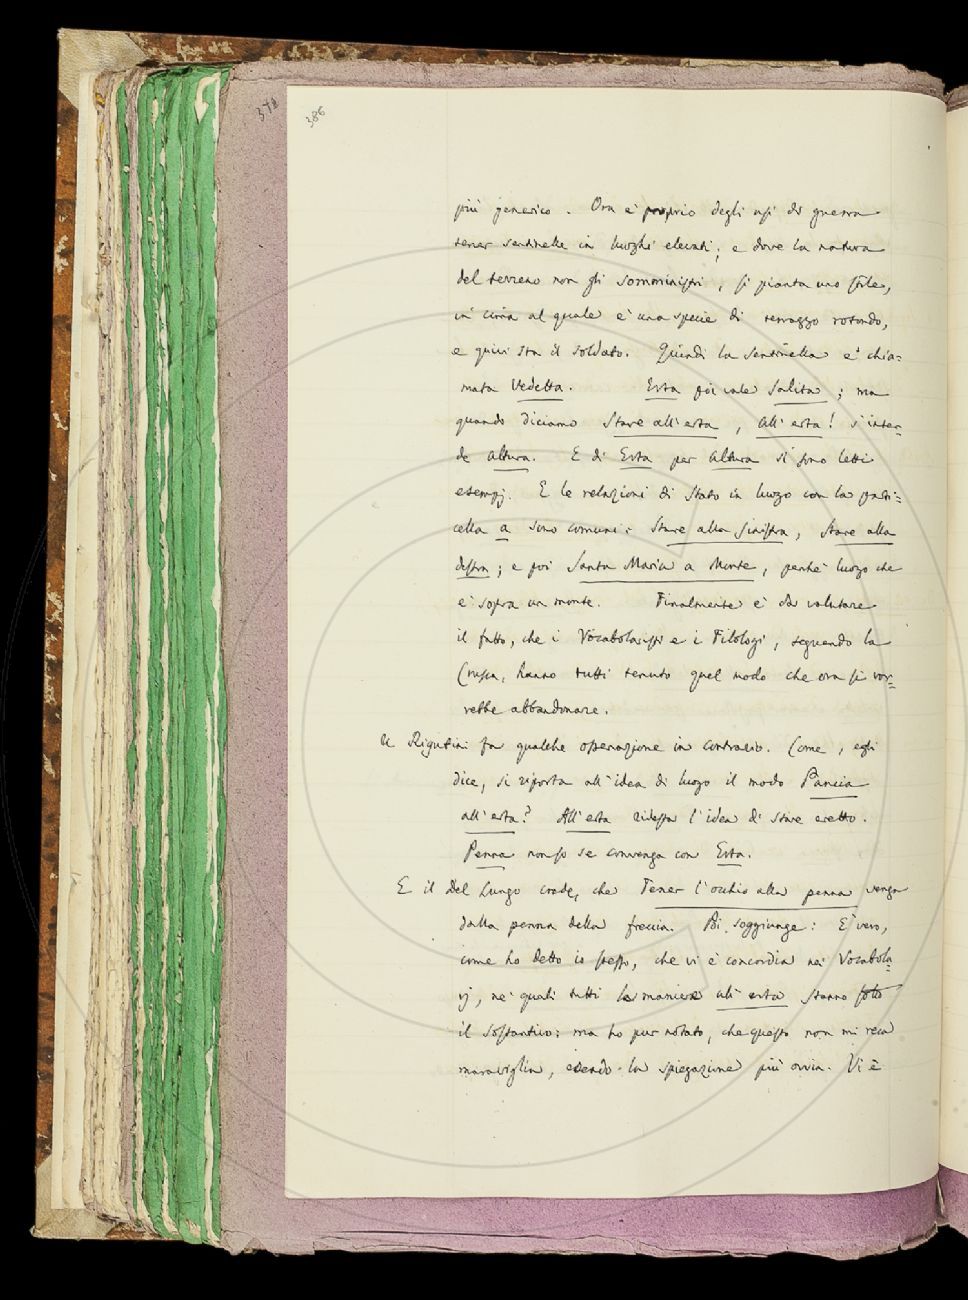 372
386
più generico. Ora è proprio degli usi di guerra
tener sentinelle in luoghi elevati; e dove la natura
del terreno non gli somministri, si pianta uno stile,
in cima al quale è una specie di terrazzo rotondo,
e quivi sta il soldato. Quindi la sentinella è chia=
mata Vedetta. Erta poi vale Salita; ma
quando diciamo Stare all'erta, All'erta! s'inten=
de altura. E di Erta per altura si sono letti
esempj. E le relazioni di stato in luogo con la parti=
cella a sono comuni: Stare alla sinistra, Stare alla
destra; e poi Santa Maria a Monte, perchè luogo che
è sopra un monte. Finalmente è da valutare
il fatto, che i Vocabolaristi e i Filologi, seguendo la
Crusca, hanno tutti tenuto quel modo che ora si vor=
rebbe abbandonare.
Il Rigutini fa qualche osservazione in contrario. Come, egli
dice, si riporta all'idea di luogo il modo Pancia
all'erta? All'erta ridesta l'idea di stare eretto.
Penna non so se convenga con Erta.
E il Del Lungo crede, che Tener l'occhio alla penna venga
dalla penna della freccia. Poi soggiunge: È vero,
come ho detto io stesso, che vi è concordia nei Vocabola=
rj, ne' quali tutti le maniere all'erta stanno sotto
il sostantivo: ma ho pur notato, che questo non mi reca
maraviglia, essendo la spiegazione più ovvia. Vi è